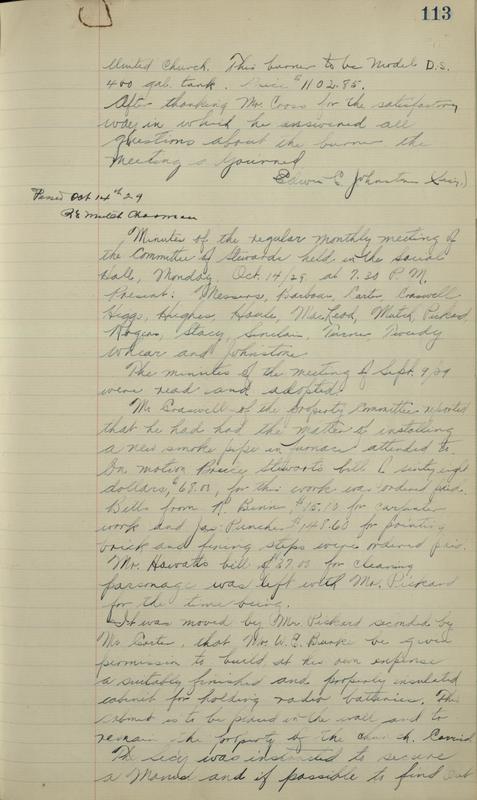 113
United Church. This burner to be Model D.S.
400 gal. tank. Price $1102.85.
After thanking Mr. Cross for the satisfactory
way in which he answered all
questions about the burner the
meeting adjourned
Edwin C. Johnstone Secy.)
Passed Oct 14th 29
R E Mutch Chairman
Minutes of the regular monthly meeting of
the Committee of Stewards held in the social
Hall, Monday, Oct. 14/29 at 7.30 P.M.
Present: Messers, Barbour, Carter, Craswell,
Higgs, Hughes, Houle, MacLeod, Mutch, Pickard,
Rogers, Stacy, Sinclair, Turner, Tweedy
Whear and Johnstone
The minutes of the meeting of Sept. 9/29
were read and adopted.
Mr. Craswell of the property committee reported
that he had had the matter of installing
a new smoke pipe in furnace attended to.
On motion Bruce Stewarts bill of sixty eight
dollars, $68.00, for this work was ordered paid.
Bills from R. Binns $15.10 for carpenter
work and Jas. Puncher $148.60 for painting
brick and fixing steps were ordered paid.
Mr. Howatts bill of $37.00 for cleaning
parsonage was left with Mr. Pickard
for the time being.
It was moved by Mr. Pickard seconded by
Mr. Carter, that Mr. W.E. Burke be given
permission to build at his own expense
a suitably finished and properly insulated
cabinet for holding radio batteries. This
cabinet is to be placed in the wall and to
remain the property of the church. Carried
The Secy was instructed to secure
a Manual and if possible to find out